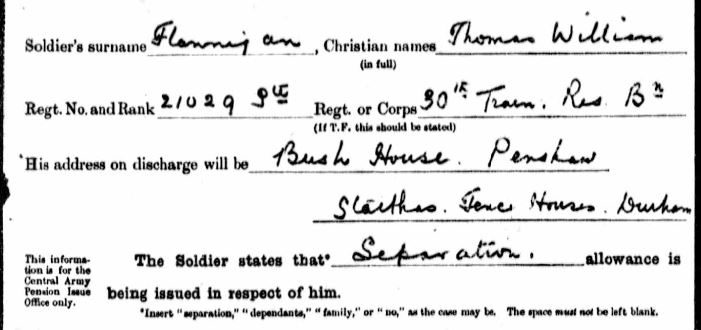 Soldier's surname Flannigan, Christian names Thomas William
(in full)
Regt. No. and Rank 21029 Pte Regt. or Corps 30th Train. Res. Bn
(If T.F. this should be stated)
*His address on discharge will be Bush House. Penshaw
Staithes. Fence Houses. Durham
The Soldier states that* Separation. allowance is
being issued in respect of him.
This informa-
tion is for the
Central Army
Pension Issue
Office only.
*Insert "separation," "dependants," "family," or "no," as the case may be. The space must not be left blank.